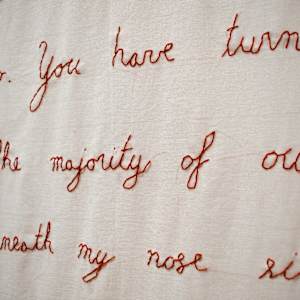 r. You have turn
the majority of ou
neath my nose si